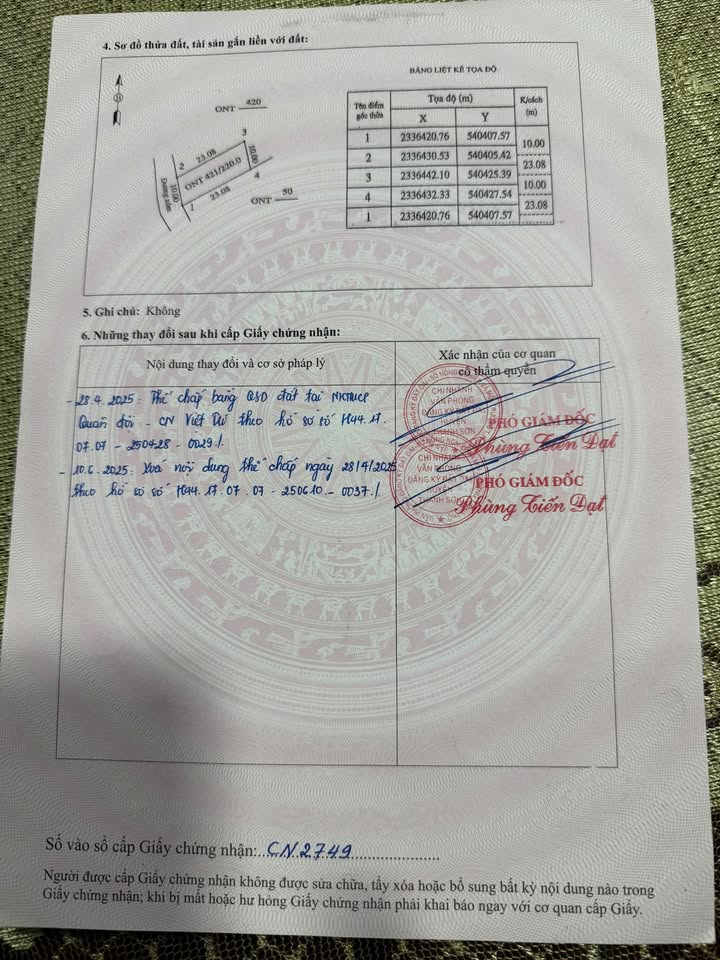 4. Sơ đồ thửa đất, tài sản gắn liền với đất:
BẢNG LIỆT KÊ TỌA ĐỘ
Tên điểm góc thửa | Tọa độ (m) | K/cách (m)
X | Y
1 | 2336420.76 | 540407.57
10.00
2 | 2336430.53 | 540405.42
23.08
3 | 2336442.10 | 540425.39
10.00
4 | 2336432.33 | 540427.54
23.08
1 | 2336420.76 | 540407.57
ONT 420
3
2 23.08 10.00
ONT 421/220.0
10.00 23.08 4
1
ONT 50
5. Ghi chú: Không
6. Những thay đổi sau khi cấp Giấy chứng nhận:
Nội dung thay đổi và cơ sở pháp lý
Xác nhận của cơ quan
có thẩm quyền
- 28.4.2025: Thế chấp bằng QSD đất tại NHTMCP
Quân đội - CN Việt Trì theo hồ sơ số H44.17.
07.07 - 250428 - 0029./.
- 10.6.2025: Xoá nội dung thế chấp ngày 28/4/2025
theo hồ sơ số H44.17.07.07 - 250610 - 0037./.
CHI NHÁNH
VĂN PHÒNG
ĐĂNG KÝ ĐẤT ĐAI
HUYỆN
THANH SƠN
PHÓ GIÁM ĐỐC
Phùng Tiến Đạt
CHI NHÁNH
VĂN PHÒNG
ĐĂNG KÝ ĐẤT ĐAI
HUYỆN
THANH SƠN
PHÓ GIÁM ĐỐC
Phùng Tiến Đạt
Số vào sổ cấp Giấy chứng nhận: CN 2749
Người được cấp Giấy chứng nhận không được sửa chữa, tẩy xóa hoặc bổ sung bất kỳ nội dung nào trong
Giấy chứng nhận; khi bị mất hoặc hư hỏng Giấy chứng nhận phải khai báo ngay với cơ quan cấp Giấy.